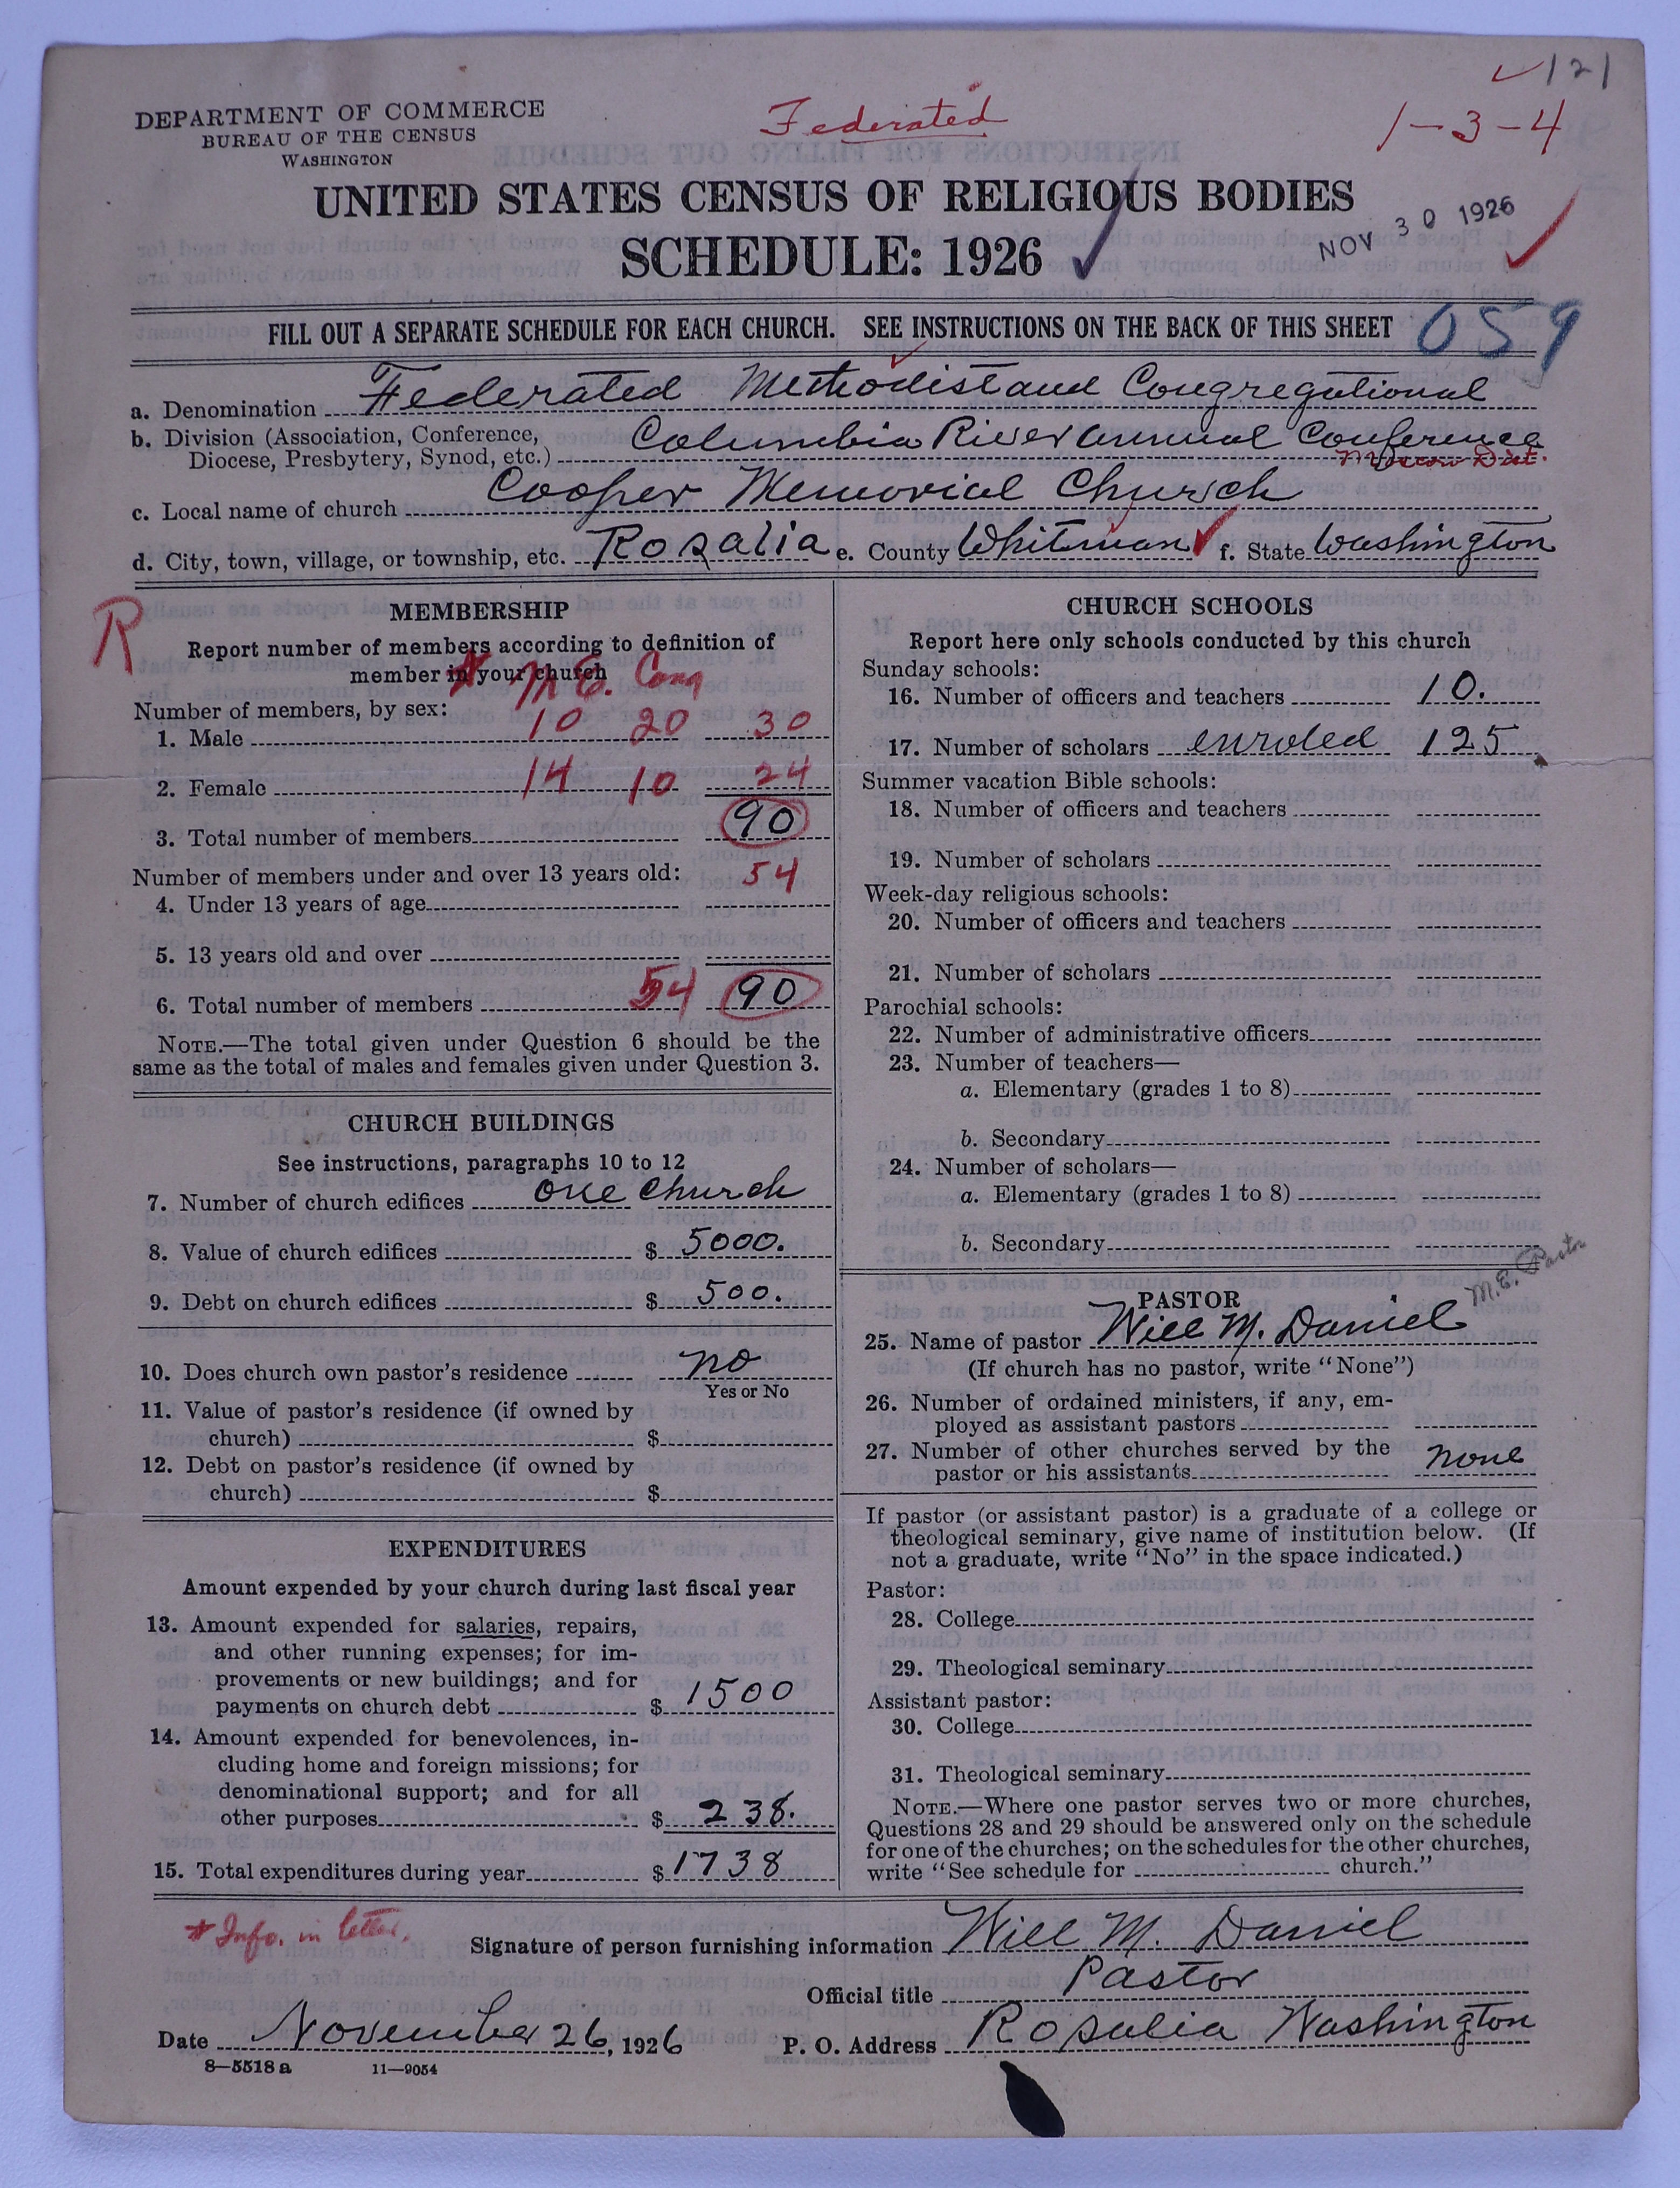 ✓ 121
DEPARTMENT OF COMMERCE
BUREAU OF THE CENSUS
WASHINGTON
Federated
1-3-4
UNITED STATES CENSUS OF RELIGIOUS BODIES
SCHEDULE: 1926 ✓
NOV 30 1926 ✓
FILL OUT A SEPARATE SCHEDULE FOR EACH CHURCH. SEE INSTRUCTIONS ON THE BACK OF THIS SHEET 059
a. Denomination Federated Methodist and Congregational
b. Division (Association, Conference, Diocese, Presbytery, Synod, etc.) Columbia River Annual Conference
Dist.
c. Local name of church Cooper Memorial Church
d. City, town, village, or township, etc. Rosalia e. County Whitman ✓ f. State Washington
R
MEMBERSHIP
Report number of members according to definition of
member in your church
* M. E. Cong
Number of members, by sex:
1. Male 10 20 30
2. Female 14 10 24
3. Total number of members 90
Number of members under and over 13 years old: 54
4. Under 13 years of age
5. 13 years old and over
6. Total number of members 54 90
NOTE.—The total given under Question 6 should be the
same as the total of males and females given under Question 3.
CHURCH BUILDINGS
See instructions, paragraphs 10 to 12
7. Number of church edifices one church
8. Value of church edifices $ 5000.
9. Debt on church edifices $ 500.
10. Does church own pastor's residence no
Yes or No
11. Value of pastor's residence (if owned by
church) $
12. Debt on pastor's residence (if owned by
church) $
EXPENDITURES
Amount expended by your church during last fiscal year
13. Amount expended for salaries, repairs,
and other running expenses; for im-
provements or new buildings; and for
payments on church debt $ 1500
14. Amount expended for benevolences, in-
cluding home and foreign missions; for
denominational support; and for all
other purposes $ 238.
15. Total expenditures during year $ 1738
CHURCH SCHOOLS
Report here only schools conducted by this church
Sunday schools:
16. Number of officers and teachers 10.
17. Number of scholars enroled 125
Summer vacation Bible schools:
18. Number of officers and teachers
19. Number of scholars
Week-day religious schools:
20. Number of officers and teachers
21. Number of scholars
Parochial schools:
22. Number of administrative officers
23. Number of teachers—
a. Elementary (grades 1 to 8)
b. Secondary
24. Number of scholars—
a. Elementary (grades 1 to 8)
b. Secondary
M.E. Pastor
PASTOR
25. Name of pastor Will M. Daniel
(If church has no pastor, write "None")
26. Number of ordained ministers, if any, em-
ployed as assistant pastors
27. Number of other churches served by the
pastor or his assistants none
If pastor (or assistant pastor) is a graduate of a college or
theological seminary, give name of institution below. (If
not a graduate, write "No" in the space indicated.)
Pastor:
28. College
29. Theological seminary
Assistant pastor:
30. College
31. Theological seminary
NOTE.—Where one pastor serves two or more churches,
Questions 28 and 29 should be answered only on the schedule
for one of the churches; on the schedules for the other churches,
write "See schedule for church."
* Info. in letter.
Signature of person furnishing information Will M. Daniel
Official title Pastor
Date November 26, 1926 P. O. Address Rosalia Washington
8—5518 a 11—9054